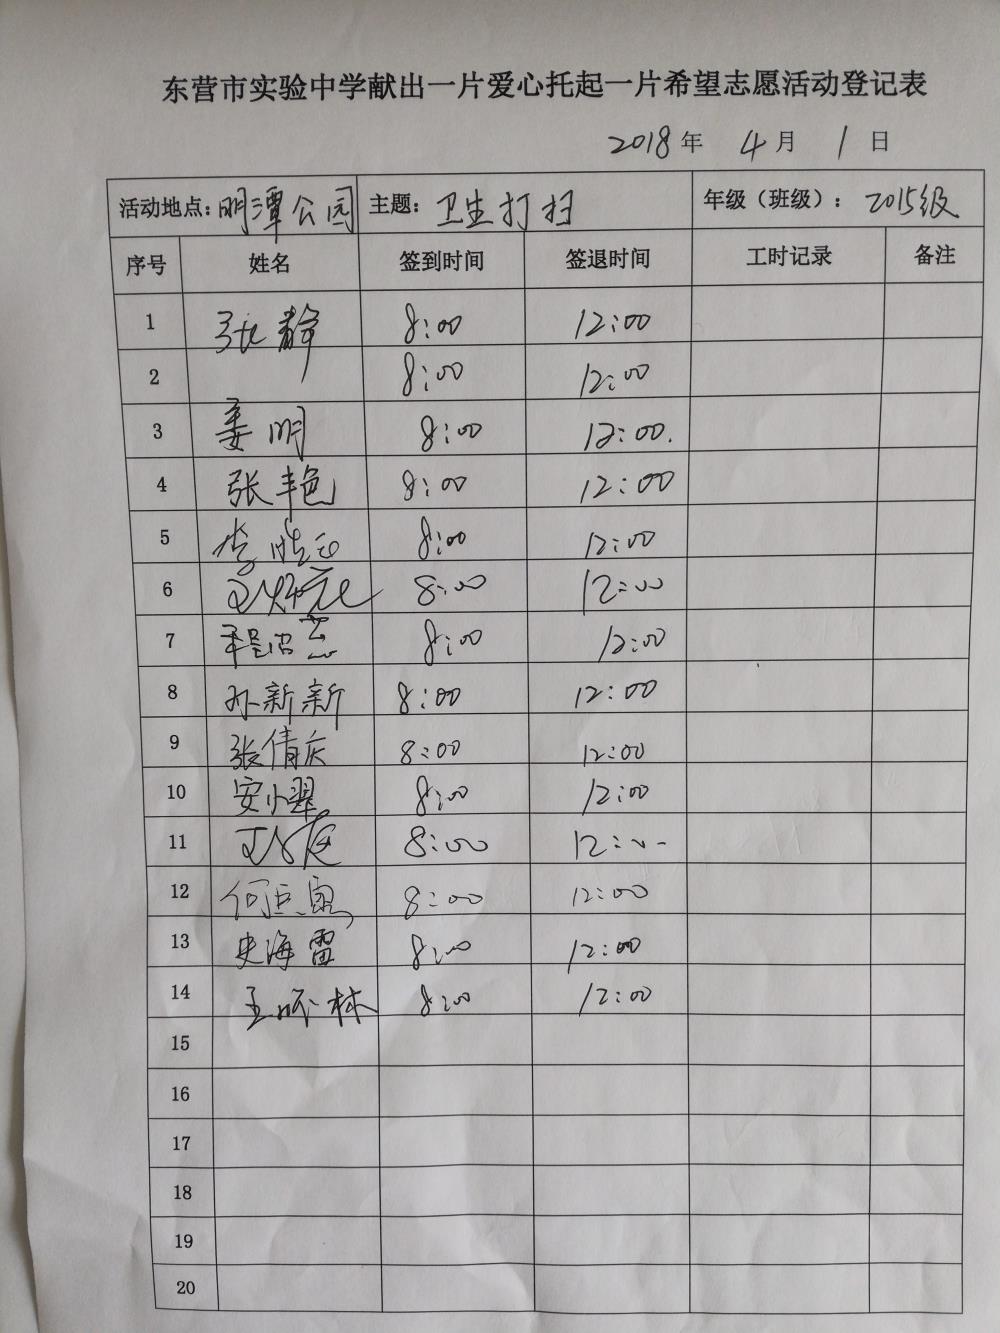 东营市实验中学献出一片爱心托起一片希望志愿活动登记表
2018年 4月 1日
活动地点：明潭公园 主题：卫生打扫 年级（班级）：2015级
序号 姓名 签到时间 签退时间 工时记录 备注
1 张静 8:00 12:00
2 8:00 12:00
3 姜明 8:00 12:00.
4 张丰艳 8:00 12:00
5 李 8:00 12:00
6 8:00 12:00
7 程 8:00 12:00
8 孙新新 8:00 12:00
9 张倩庆 8:00 12:00
10 安小翠 8:00 12:00
11 8:00 12:00
12 何 8:00 12:00
13 史海雷 8:00 12:00
14 王 林 8:00 12:00
15
16
17
18
19
20